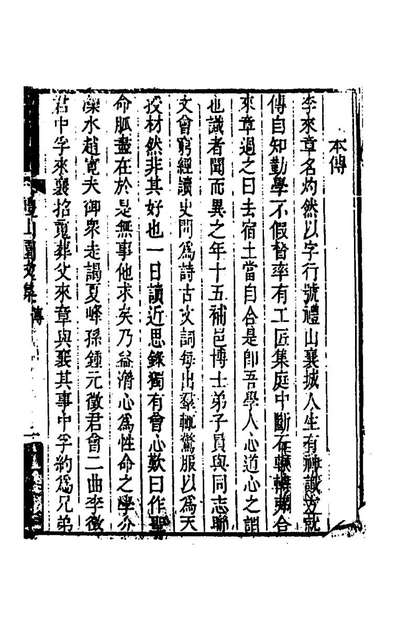 本傳
李來章名灼然以字行號禮山襄城人生有神識
傳自知勤學不假督率有工匠集庭中斷在合
來章過之曰去宿土當自合是卽吾學人心道心之謂
也識者聞而異之年十五補邑博士弟子員與同志聯
文會窮經讀史間爲詩古文詞每出羣輒驚服以爲天
授材然非其好也一日讀近思錄獨有會心歎曰作聖
命脈盡在於是無事他求矣乃益潛心爲性命之學
深水趙寬夫御眾走謁夏峰孫鍾元徵君會二曲李徵
君中孚來襄招葬父來章與襄其事中孚約爲兄弟
禮山園文集
傳
一